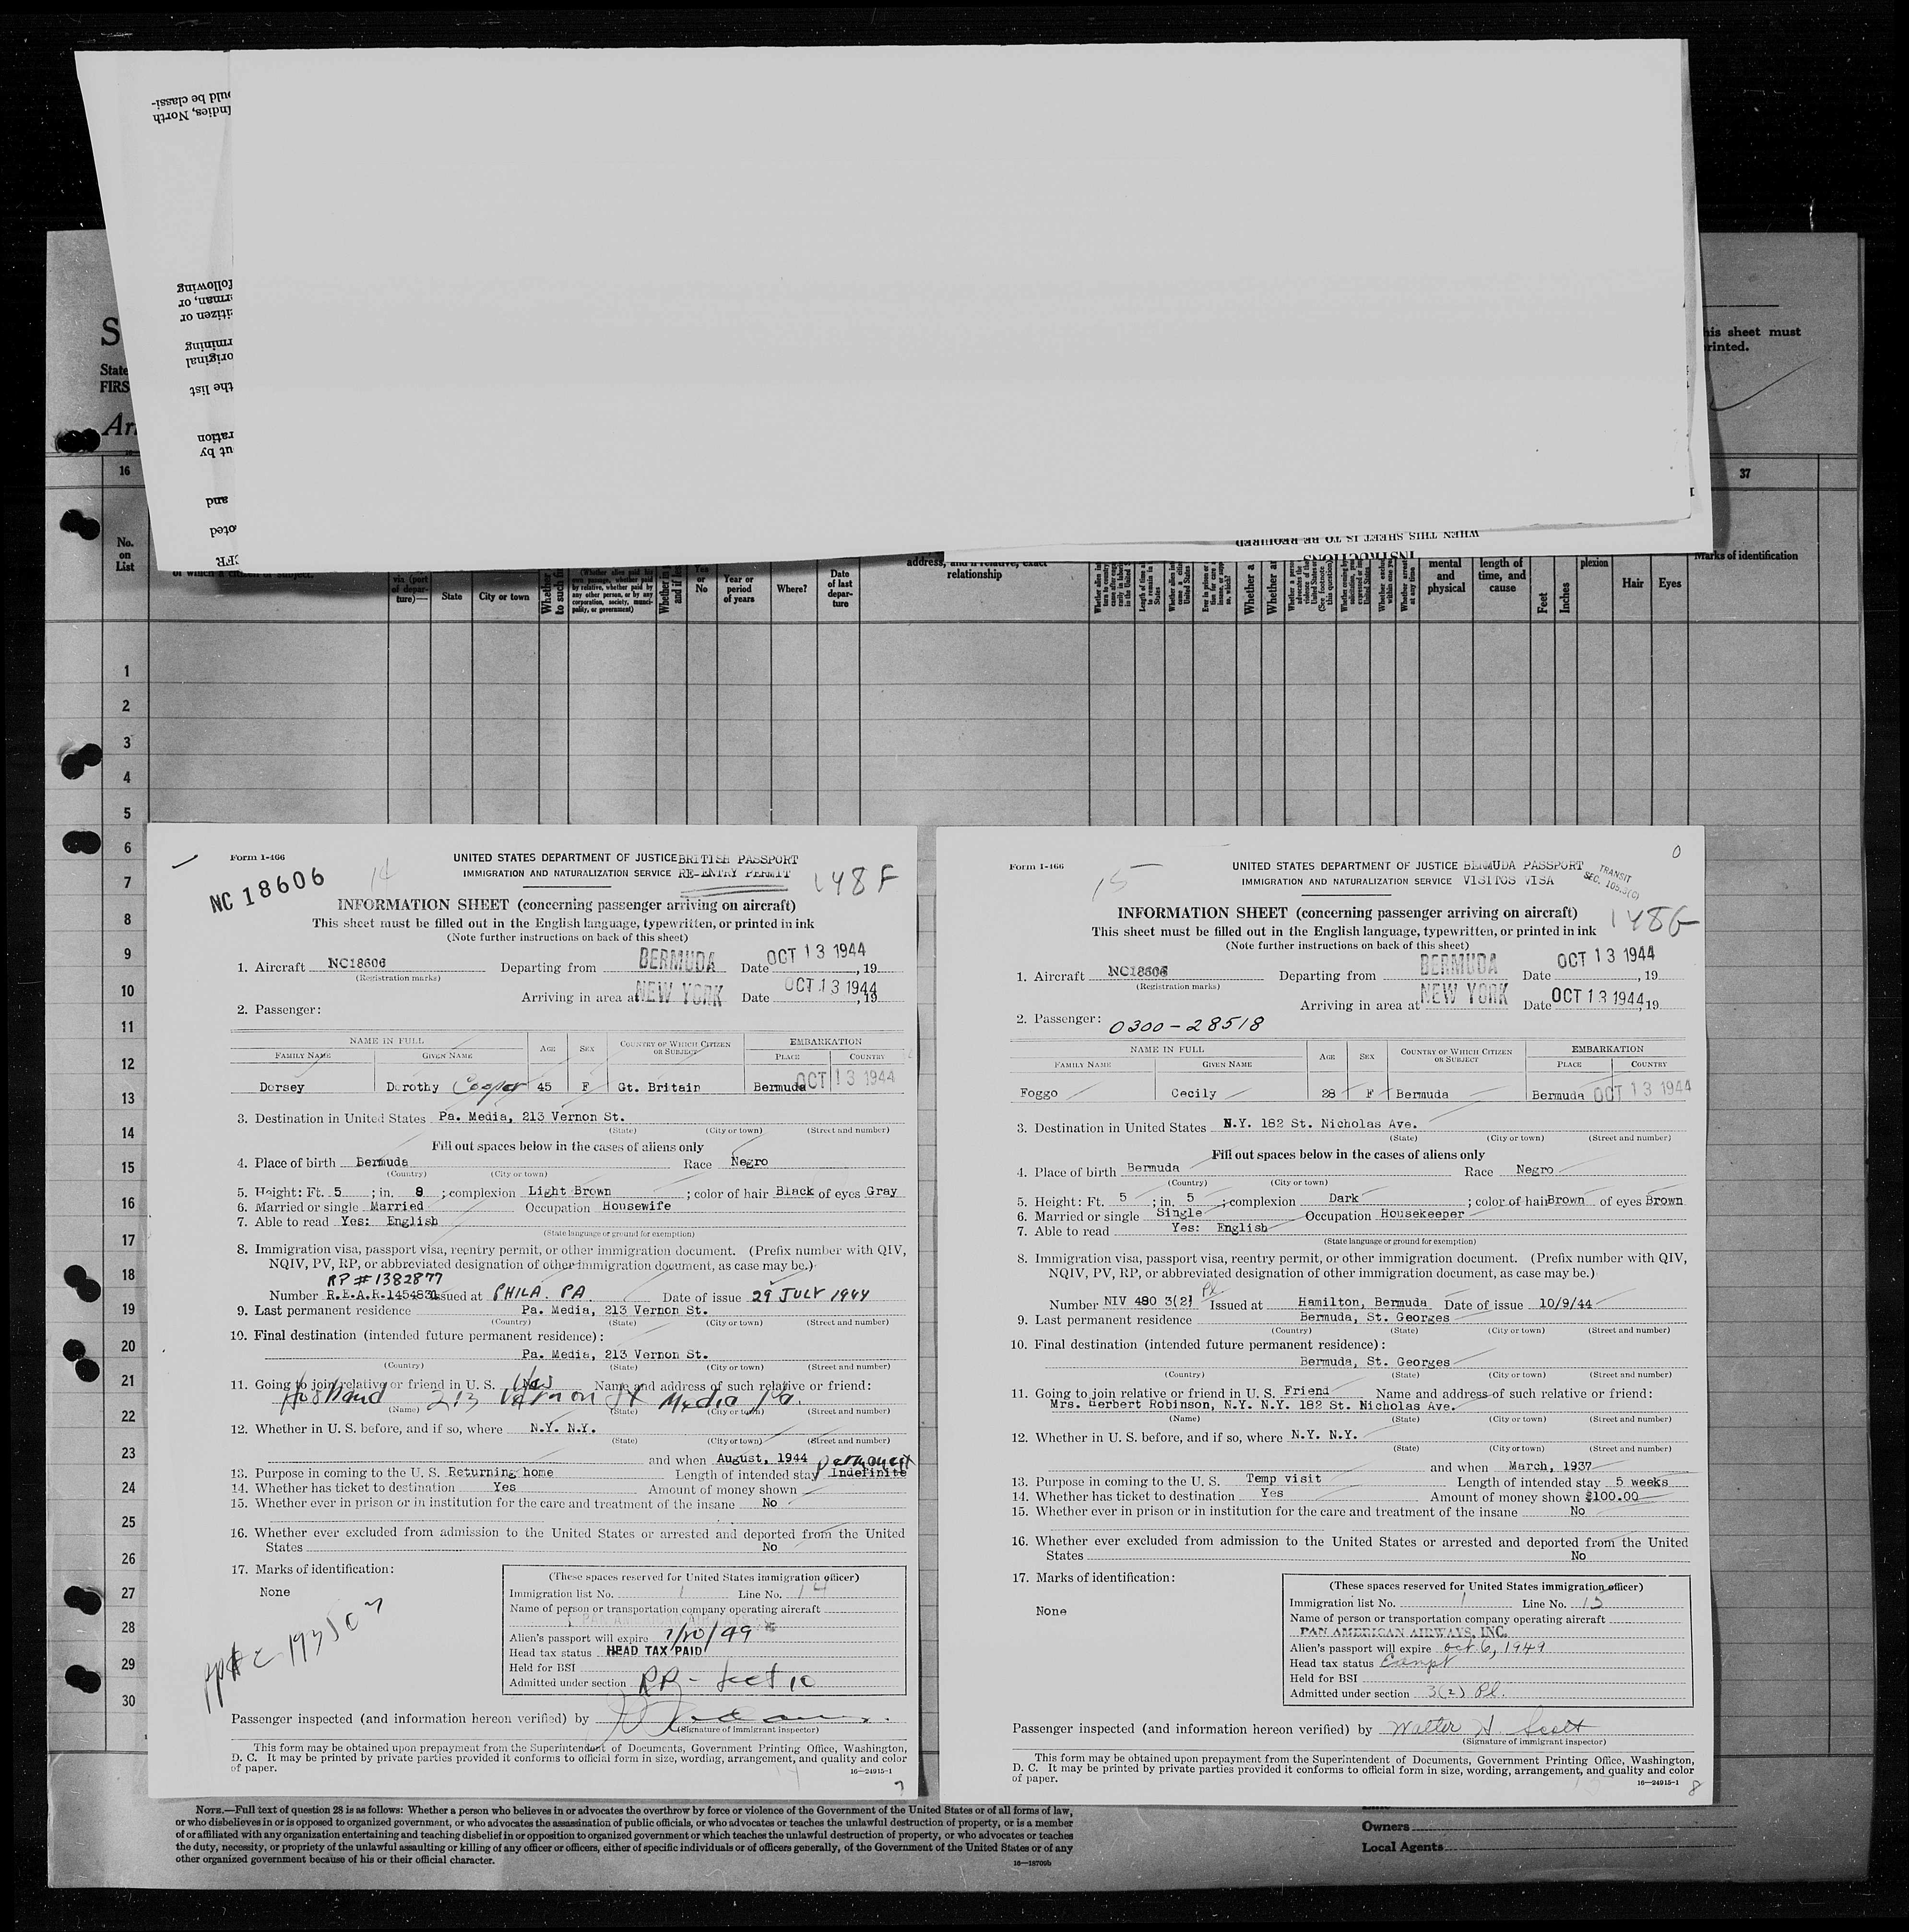 his sheet must
rinted.
State
FIRS
16
37
No.
on
List
via (port
of depar-
ture)—
State
City or town
Yes
or
No
Year or
period
of years
Where?
Date
of last
depar-
ture
address, and if relative, exact
relationship
WHEN THIS SHEET IS TO BE REQUIRED
INSTRUCTIONS
mental
and
physical
length of
time, and
cause
Feet
Inches
plexion
Hair
Eyes
Marks of identification
1
2
3
4
5
6
7
8
9
10
11
12
13
14
15
16
17
18
19
20
21
22
23
24
25
26
27
28
29
30
Form I-466
NC 18606
14
UNITED STATES DEPARTMENT OF JUSTICE BRITISH PASSPORT
IMMIGRATION AND NATURALIZATION SERVICE RE-ENTRY PERMIT
148 F
INFORMATION SHEET (concerning passenger arriving on aircraft)
This sheet must be filled out in the English language, typewritten, or printed in ink
(Note further instructions on back of this sheet)
1. Aircraft NC18606 Departing from BERMUDA Date OCT 13 1944, 19
(Registration marks)
Arriving in area at NEW YORK Date OCT 13 1944, 19
2. Passenger:
NAME IN FULL AGE SEX COUNTRY OF WHICH CITIZEN OR SUBJECT EMBARKATION
FAMILY NAME GIVEN NAME PLACE COUNTRY
Dorsey Dorothy Cooper 45 F Gt. Britain Bermuda OCT 13 1944
3. Destination in United States Pa. Media, 213 Vernon St.
(State) (City or town) (Street and number)
Fill out spaces below in the cases of aliens only
4. Place of birth Bermuda Race Negro
(Country) (City or town)
5. Height: Ft. 5 ; in. 8 ; complexion Light Brown ; color of hair Black of eyes Gray
6. Married or single Married Occupation Housewife
7. Able to read Yes: English
(State language or ground for exemption)
8. Immigration visa, passport visa, reentry permit, or other immigration document. (Prefix number with QIV,
NQIV, PV, RP, or abbreviated designation of other immigration document, as case may be.)
RP # 1382877
Number R.E.A.R.1454831 Issued at PHILA. PA. Date of issue 29 JULY 1944
9. Last permanent residence Pa. Media, 213 Vernon St.
(Country) (State) (City or town) (Street and number)
10. Final destination (intended future permanent residence):
Pa. Media, 213 Vernon St.
(Country) (State) (City or town) (Street and number)
11. Going to join relative or friend in U. S. Yes Name and address of such relative or friend:
Husband 213 Vernon St Media Pa.
(Name) (State) (City or town) (Street and number)
12. Whether in U. S. before, and if so, where N.Y. N.Y.
(State) (City or town) (Street and number)
and when August, 1944
permanent
13. Purpose in coming to the U. S. Returning home Length of intended stay Indefinite
14. Whether has ticket to destination Yes Amount of money shown
15. Whether ever in prison or in institution for the care and treatment of the insane No
16. Whether ever excluded from admission to the United States or arrested and deported from the United
States No
17. Marks of identification:
None
(These spaces reserved for United States immigration officer)
Immigration list No. 1 Line No. 14
Name of person or transportation company operating aircraft
PAN AMERICAN AIRWAYS
Alien's passport will expire 7/20/49
Head tax status HEAD TAX PAID
Held for BSI
Admitted under section RP - Sect 10
Passenger inspected (and information hereon verified) by
(Signature of immigrant inspector)
This form may be obtained upon prepayment from the Superintendent of Documents, Government Printing Office, Washington,
D. C. It may be printed by private parties provided it conforms to official form in size, wording, arrangement, and quality and color
of paper.
16—24915-1
7
Form I-466
15
UNITED STATES DEPARTMENT OF JUSTICE BERMUDA PASSPORT
IMMIGRATION AND NATURALIZATION SERVICE VISITOS VISA
TRANSIT
SEC. 105.3(C)
0
148G
INFORMATION SHEET (concerning passenger arriving on aircraft)
This sheet must be filled out in the English language, typewritten, or printed in ink
(Note further instructions on back of this sheet)
1. Aircraft NC18606 Departing from BERMUDA Date OCT 13 1944, 19
(Registration marks)
Arriving in area at NEW YORK Date OCT 13 1944, 19
2. Passenger: 0300-28518
NAME IN FULL AGE SEX COUNTRY OF WHICH CITIZEN OR SUBJECT EMBARKATION
FAMILY NAME GIVEN NAME PLACE COUNTRY
Foggo Cecily 28 F Bermuda Bermuda OCT 13 1944
3. Destination in United States N.Y. 182 St. Nicholas Ave.
(State) (City or town) (Street and number)
Fill out spaces below in the cases of aliens only
4. Place of birth Bermuda Race Negro
(Country) (City or town)
5. Height: Ft. 5 ; in. 5 ; complexion Dark ; color of hair Brown of eyes Brown
6. Married or single Single Occupation Housekeeper
7. Able to read Yes: English
(State language or ground for exemption)
8. Immigration visa, passport visa, reentry permit, or other immigration document. (Prefix number with QIV,
NQIV, PV, RP, or abbreviated designation of other immigration document, as case may be.)
Number NIV 480 3(2) Pl Issued at Hamilton, Bermuda Date of issue 10/9/44
9. Last permanent residence Bermuda, St. Georges
(Country) (State) (City or town) (Street and number)
10. Final destination (intended future permanent residence):
Bermuda, St. Georges
(Country) (State) (City or town) (Street and number)
11. Going to join relative or friend in U. S. Friend Name and address of such relative or friend:
Mrs. Herbert Robinson, N.Y. N.Y. 182 St. Nicholas Ave.
(Name) (State) (City or town) (Street and number)
12. Whether in U. S. before, and if so, where N.Y. N.Y.
(State) (City or town) (Street and number)
and when March, 1937
13. Purpose in coming to the U. S. Temp visit Length of intended stay 5 weeks
14. Whether has ticket to destination Yes Amount of money shown $100.00
15. Whether ever in prison or in institution for the care and treatment of the insane No
16. Whether ever excluded from admission to the United States or arrested and deported from the United
States No
17. Marks of identification:
None
(These spaces reserved for United States immigration officer)
Immigration list No. 1 Line No. 15
Name of person or transportation company operating aircraft
PAN AMERICAN AIRWAYS, INC.
Alien's passport will expire Oct. 6, 1949
Head tax status Exempt
Held for BSI
Admitted under section 3(2) Pl.
Passenger inspected (and information hereon verified) by Walter H. Scott
(Signature of immigrant inspector)
This form may be obtained upon prepayment from the Superintendent of Documents, Government Printing Office, Washington,
D. C. It may be printed by private parties provided it conforms to official form in size, wording, arrangement, and quality and color
of paper.
16—24915-1
8
NOTE.—Full text of question 28 is as follows: Whether a person who believes in or advocates the overthrow by force or violence of the Government of the United States or of all forms of law,
or who disbelieves in or is opposed to organized government, or who advocates the assassination of public officials, or who advocates or teaches the unlawful destruction of property, or is a member
of or affiliated with any organization entertaining and teaching disbelief in or opposition to organized government or which teaches the unlawful destruction of property, or who advocates or teaches
the duty, necessity, or propriety of the unlawful assaulting or killing of any officer or officers, either of specific individuals or of officers generally, of the Government of the United States or of any
other organized government because of his or their official character.
16—18709b
Owners
Local Agents